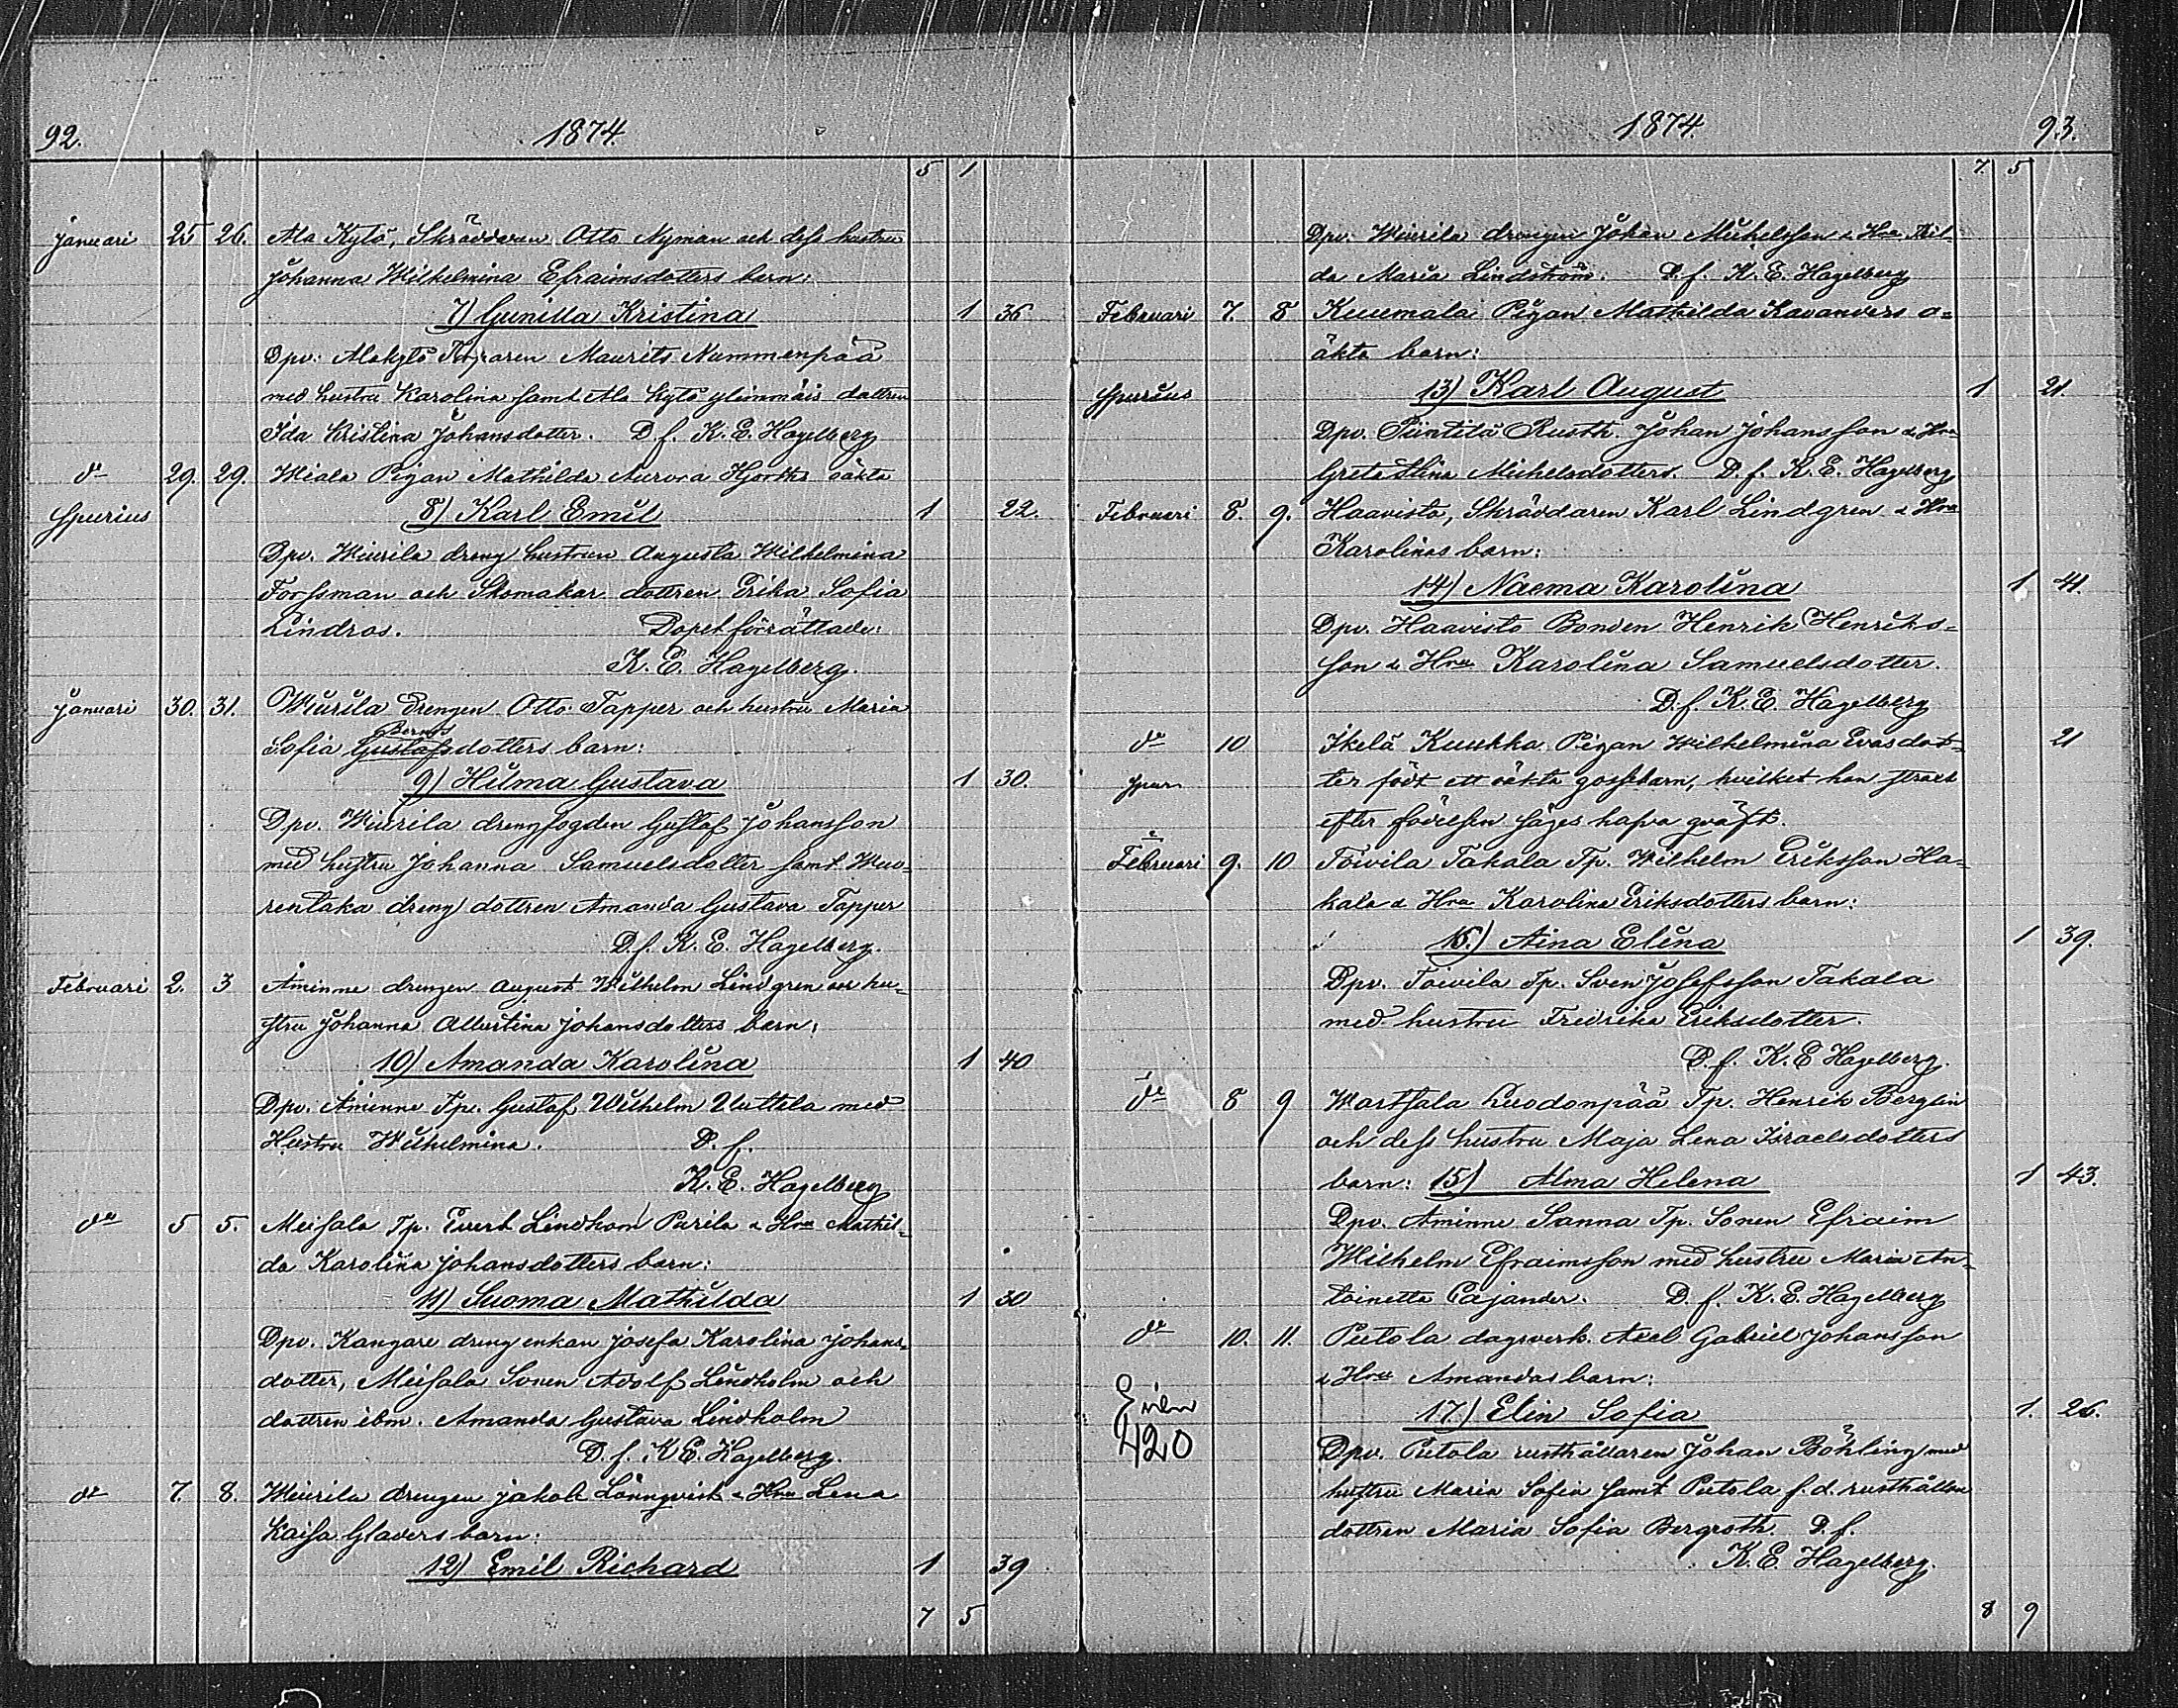 92. 1874.
5 1
Januari 25 26. Ala Kytö, Skräddaren Otto Nyman och dess hustru
Johanna Wilhelmina Efraimsdotters barn:
7) Gunilla Kristina 1 36
Dpv: Alakytö Torparen Maurits Nummenpää
med hustru Karolina samt Ala Kytö ylimmäis dottren
Ida Kristina Johansdotter. D. f. K. E. Hagelberg
do 29. 29. Pigan Mathilda Aurora Hjorths oäkta
Spurius 8) Karl Emil 1 22.
Dpv. Wiurila dreng hustrun Augusta Wilhelmina
Forssman och Skomakar dottren Erika Sofia
Lindros. Dopet förrättade:
K. E. Hagelberg.
Januari 30. 31. Wiurila Drengen Otto Tapper och hustru Maria
Sofia Gustafsdotters barn:
9) Hilma Gustava 1 30.
Dpv. Wiurila drengfogden Gustaf Johansson
med hustru Johanna Samuelsdotter samt Wuo-
rentaka dreng dottren Amanda Gustava Tapper
D. f. K. E. Hagelberg.
Februari 2. 3 Åminne drengen August Wilhelm Lindgren och hu-
stru Johanna Albertina Johansdotters barn:
10) Amanda Karolina 1 40
Dpv. Åminne Tp. Gustaf Wilhelm Uuttela med
Hustru Wilhelmina. D. f.
K. E. Hagelberg
do 5 5. Meisala Tp. Evert Lindhom Purila & Hru Mathil-
da Karolina Johansdotters barn:
11) Suoma Mathilda 1 30
Dpv. Kangare dreng enkan Josefa Karolina Johans-
dotter, Meisala Sonen Adolf Lindholm och
dottren ibm. Amanda Gustava Lindholm
D. f. K. E. Hagelberg.
do 7. 8. Wiurila drengen Jakob Lönnqvist & Hru Lena
Kaisa Gladers barn:
12) Emil Richard 1 39
7 5
1874 93.
7. 5
Dpv. Wiurila drengen Johan Michelsson & Hru Mil-
da Maria Lindström. D. f. K. E. Hagelberg
Februari 7. 8 Kuuemala Pigan Mathilda Kavanders o-
äkta barn:
Spurius 13) Karl August 1 21.
Dpv. Püntilä Rusth. Johan Johansson & Hru
Greta Stina Michelsdotters. D. f. K. E. Hagelberg
Februari 8. 9. Haavisto, Skräddaren Karl Lindgren & Hru
Karolinas barn:
14) Naema Karolina 1 41.
Dpv. Haavisto Bonden Henrik Henriks-
son & Hru Karolina Samuelsdotter.
D. f. K. E. Hagelberg
do 10 Ikelä Kuukka Pigan Wilhelmina Evasdot- 21
spur. ter födt ett oäkta gossebarn, hvilket hon strax
efter födelsen säges hafva qväft.
Februari 9. 10 Toivila Takala Tp. Wilhelm Eriksson Ha-
kala & Hru Karolina Eriksdotters barn:
16.) Aina Elina 1 39.
Dpv. Toivila Tp. Sven Josefsson Takala
med hustru Fredrika Eriksdotter.
D. f. K. E. Hagelberg.
do 8 9 Wartsala Luodonpää Tp. Henrik Berglin
och dess hustru Maja Lena Israelsdotters
barn: 15) Alma Helena 1 43.
Dpv. Åminne Sanna Tp. Sonen Efraim
Wilhelm Efraimsson med hustru Maria An-
toinette Cajander. D. f. K. E. Hagelberg
do 10. 11. Pietola dagsverk. Axel Gabriel Johansson
& Hru Amandas barn:
420 17.) Elin Sofia 1. 26.
Dpv. Pietola rusthållaren Johan Böhling med
hustru Maria Sofia samt Pietola f. d. rusthållar
dottren Maria Sofia Bergroth. D. f.
K. E. Hagelberg.
8 9